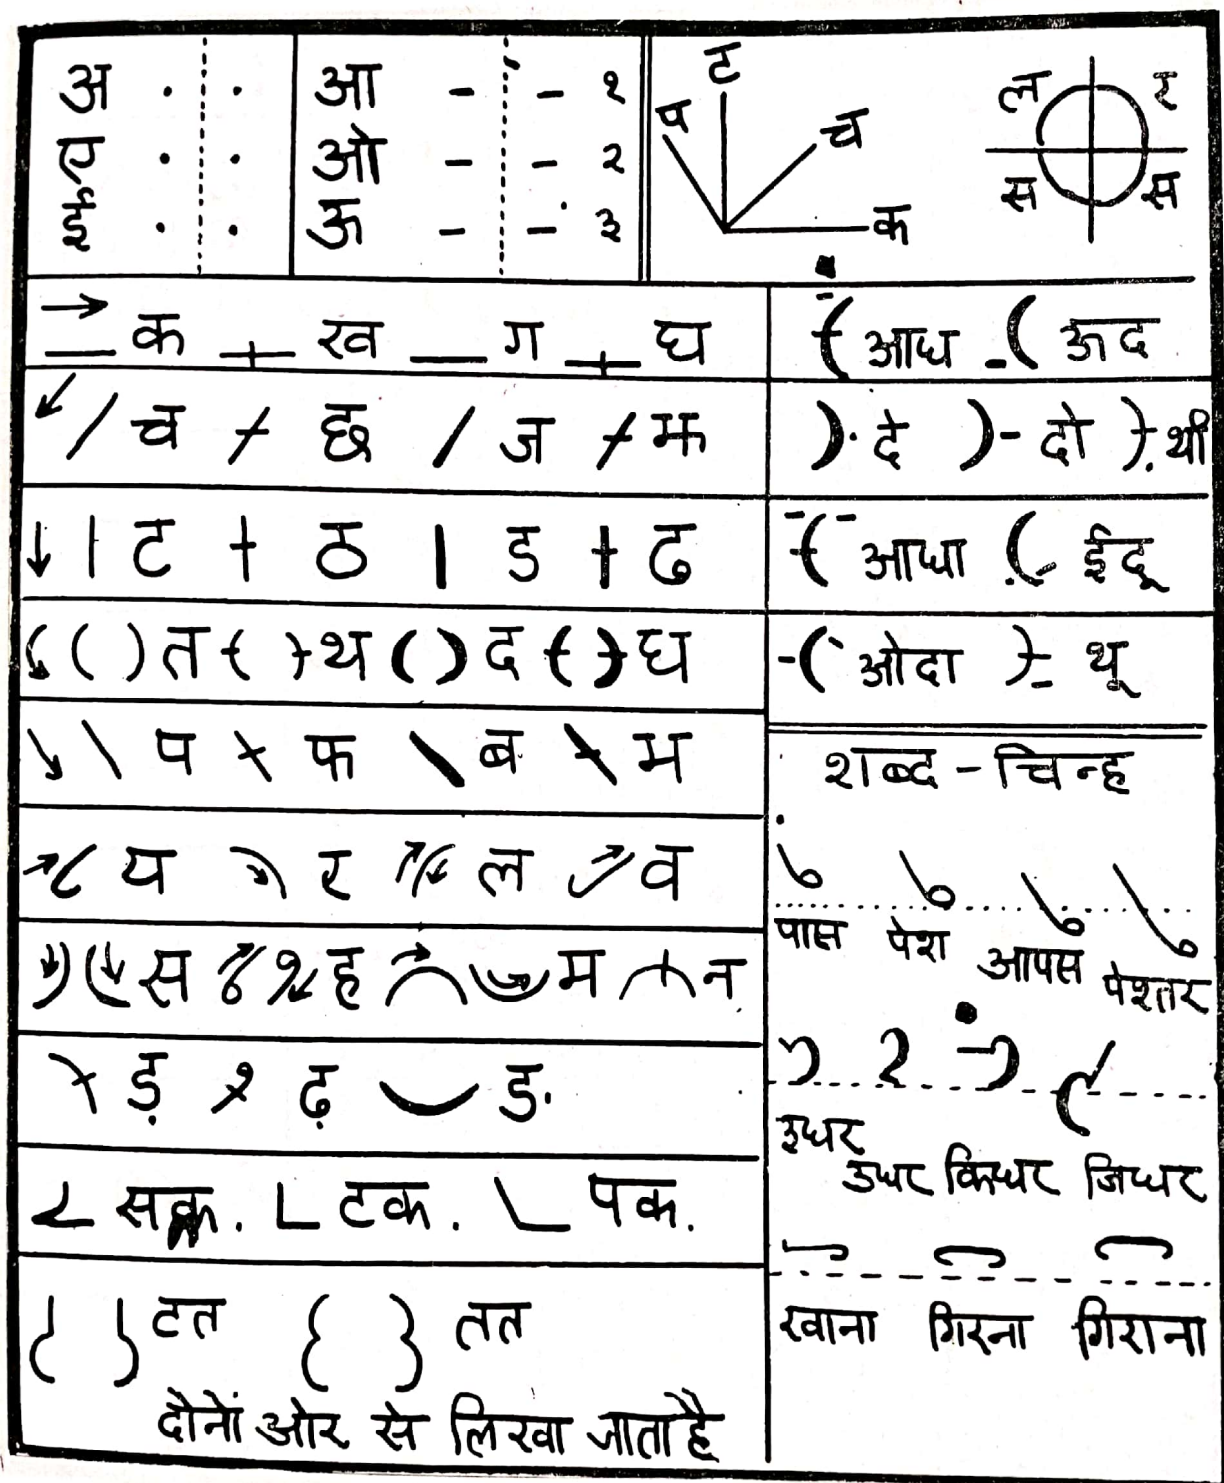 अ
ए
ई
आ १
ओ २
ऊ ३
प ट च क
ल र
स स
क ख ग घ
च छ ज झ
ट ठ ड ढ
त थ द ध
प फ ब भ
य र ल व
स ह म न
ड़ ढ़ ङ
टक. पक.
टत तत
दोनों ओर से लिखा जाता है
आध ऊद
दे दो थी
आधा ईदू
ओदा थू
शब्द-चिन्ह
पास पेश आपस पेश्तर
इधर उधर किधर जिधर
खाना गिरना गिराना